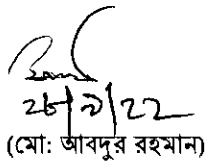 ২৮/৯/২২
(মো: আবদুর রহমান)